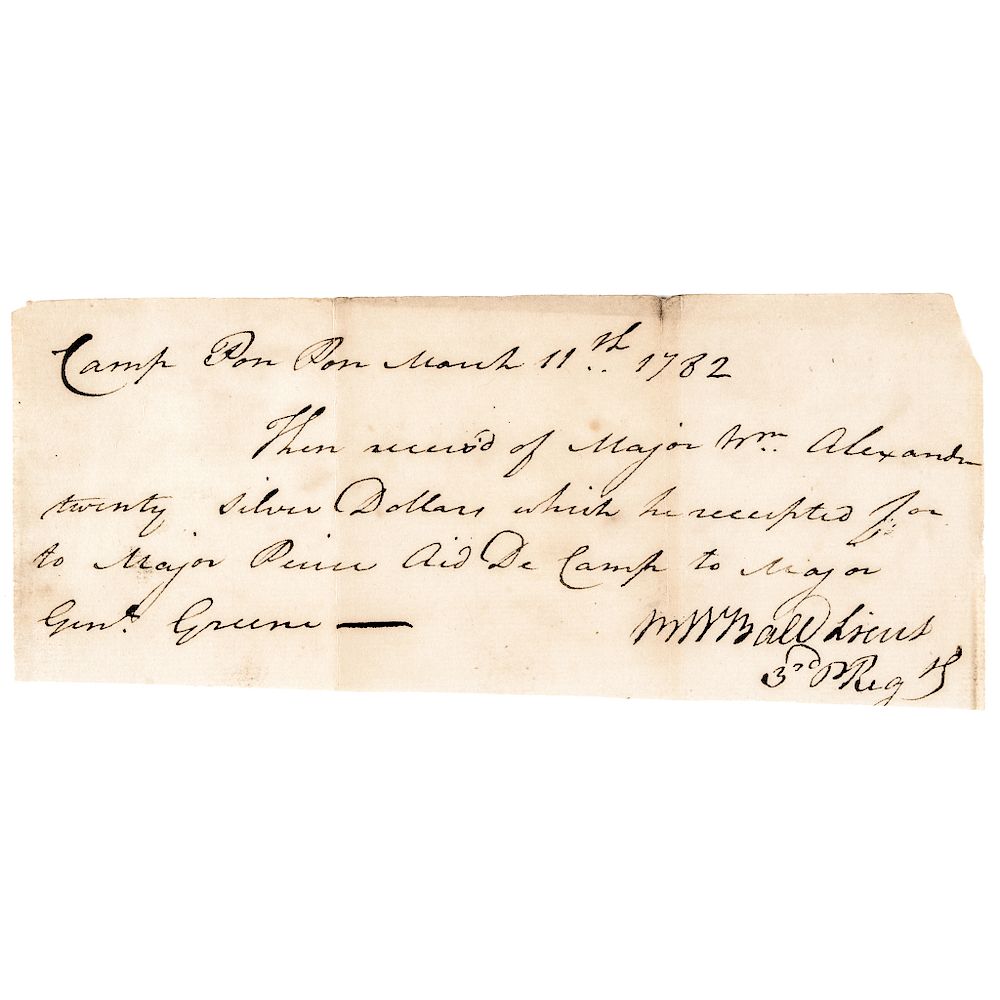 Camp Pon Pon March 11th. 1782
Then receiv'd of Major Wm. Alexander
twenty silver Dollars which he receipted for
to Major Peirce Aid De Camp to Major
Genl. Greene —
W W Ball Lieut
3rd P Regt